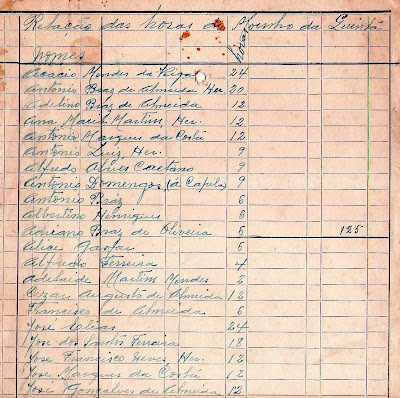 Relação das horas do Moinho da Quintã
nomes horas
Acacio Mendes da Veiga 24
Antonio Braz de Almeida Her. 20
Adelino Braz de Almeida 12
Ana Maria Martins Her. 12
Antonio Marques da Costa 12
Antonio Luiz Her. 9
Alfredo Alves Caetano 9
Antonio Domingos (da Capila) 9
Antonio Braz 6
Albertino Henriques 6
Adriano Braz de Oliveira 6 125
Alice Gaspar 6
Alfredo Ferreira 4
Adelaide Martins Mendes 6
Cezar Augusto de Almeida 12
Francisco de Almeida 6
José 24
José dos Santos Ferreira 18
José Francisco Neves, Her. 12
José Marques da Costa 12
José Gonçalves de Almeida 12